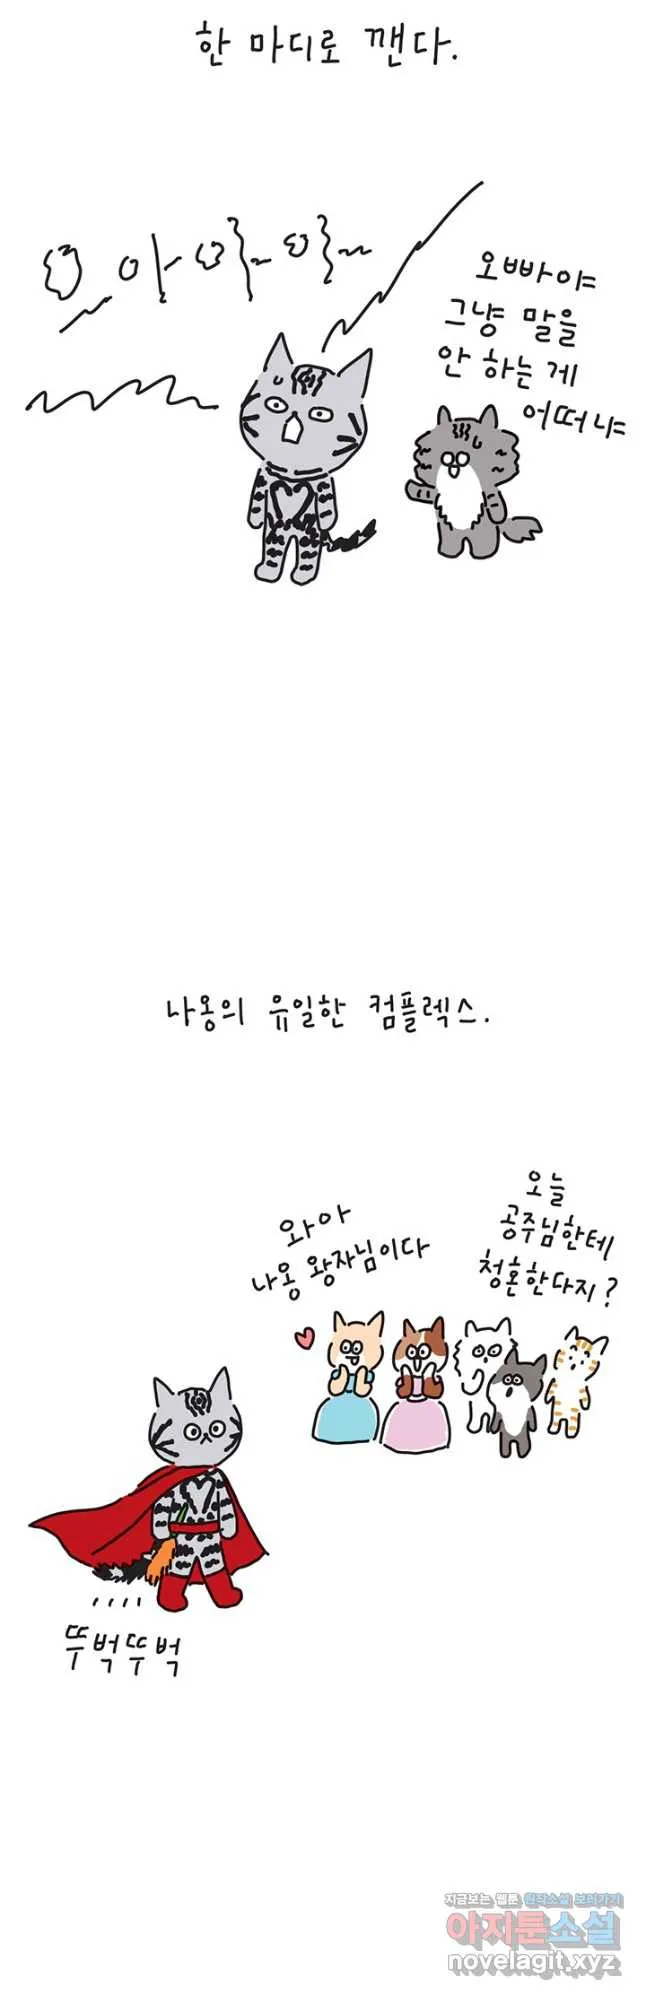 한 마디로 깬다.
오빠야
그냥 말을
안 하는 게
어떠냐
나옹의 유일한 컴플렉스.
오늘
공주님한테
청혼한다지?
와아
나옹 왕자님이다
뚜벅뚜벅
지금보는 웹툰 원작소설 보러가기
아지툰소설
novelagit.xyz